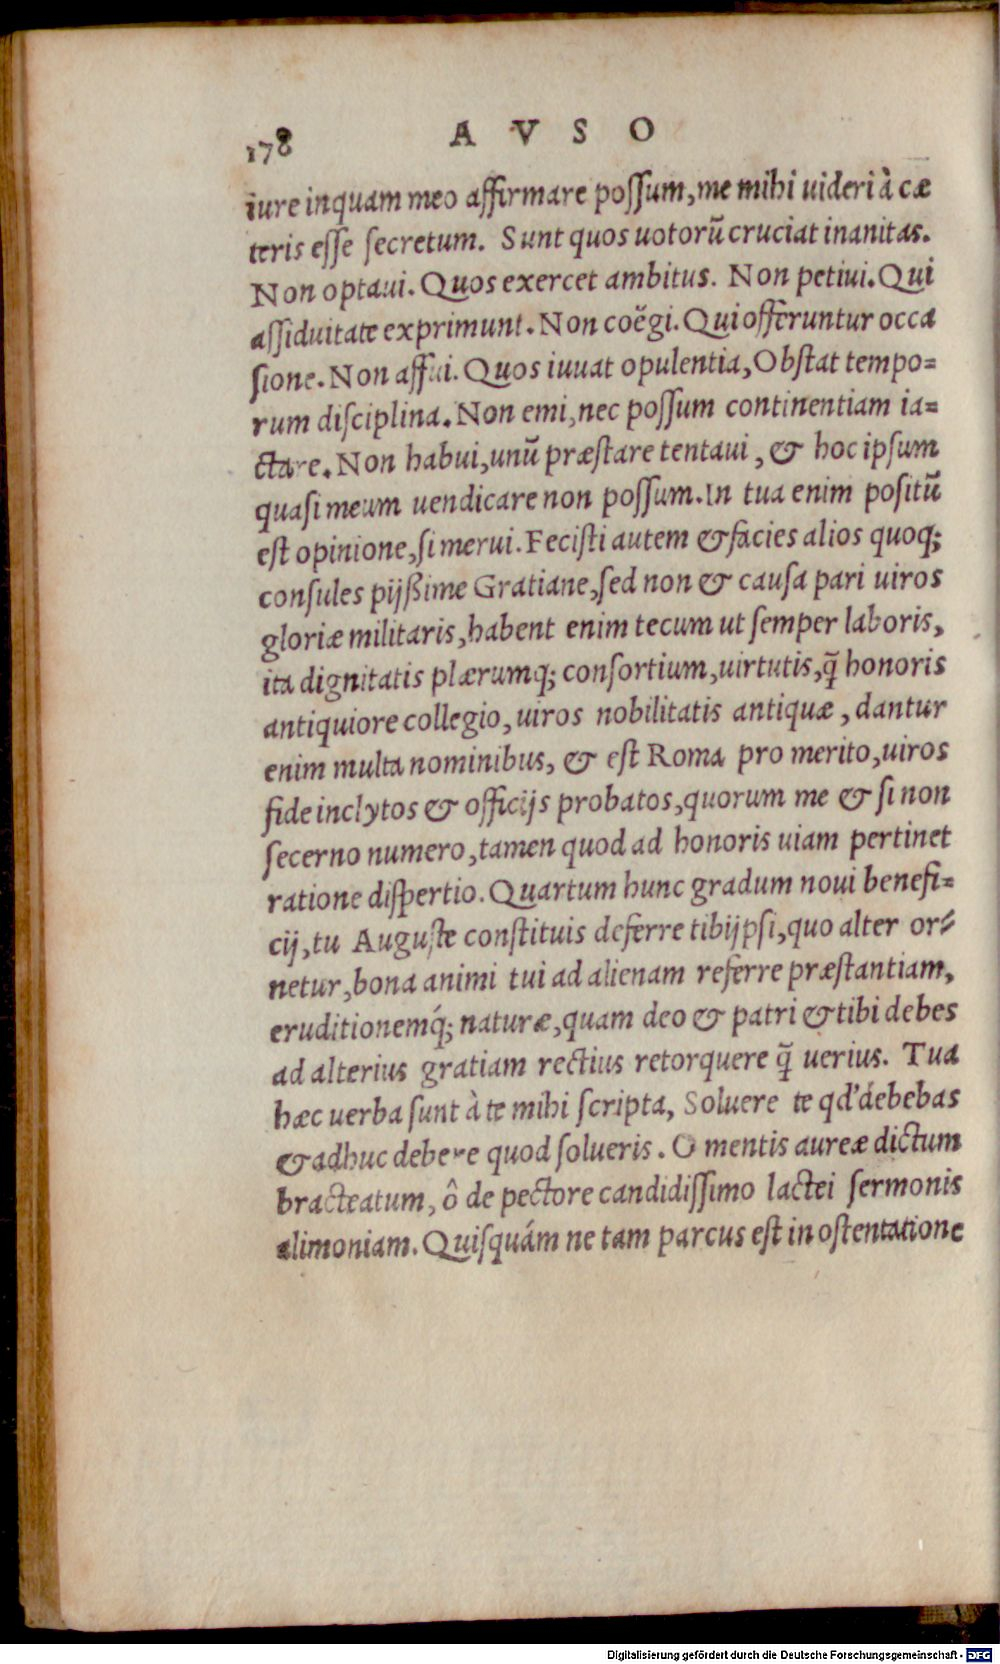 178 AVSO
iure inquam meo affirmare possum, me mihi uideri à cæ
teris esse secretum. Sunt quos uotorũ cruciat inanitas.
Non optaui. Quos exercet ambitus. Non petiui. Qui
assiduitate exprimunt. Non coëgi. Qui offeruntur occa
sione. Non affui. Quos iuuat opulentia, Obstat tempo=
rum disciplina. Non emi, nec possum continentiam ia=
ctare. Non habui, unũ præstare tentaui, & hoc ipsum
quasi meum uendicare non possum. In tua enim positũ
est opinione, si merui. Fecisti autem & facies alios quoq;
consules pijßime Gratiane, sed non & causa pari uiros
gloriæ militaris, habent enim tecum ut semper laboris,
ita dignitatis plærumq; consortium, uirtutis, q̃ honoris
antiquiore collegio, uiros nobilitatis antiquæ, dantur
enim multa nominibus, & est Roma pro merito, uiros
fide inclytos & officijs probatos, quorum me & si non
secerno numero, tamen quod ad honoris uiam pertinet
ratione dispertio. Quartum hunc gradum noui benefi=
cij, tu Auguste constituis deferre tibijpsi, quo alter or=
netur, bona animi tui ad alienam referre præstantiam,
eruditionemq́; naturæ, quam deo & patri & tibi debes
ad alterius gratiam rectius retorquere q̃ uerius. Tua
hæc uerba sunt à te mihi scripta, Soluere te qd' debebas
& adhuc debere quod solueris. O mentis aureæ dictum
bracteatum, ô de pectore candidissimo lactei sermonis
alimoniam. Quisquám ne tam parcus est in ostentatione
Digitalisierung gefördert durch die Deutsche Forschungsgemeinschaft - DFG